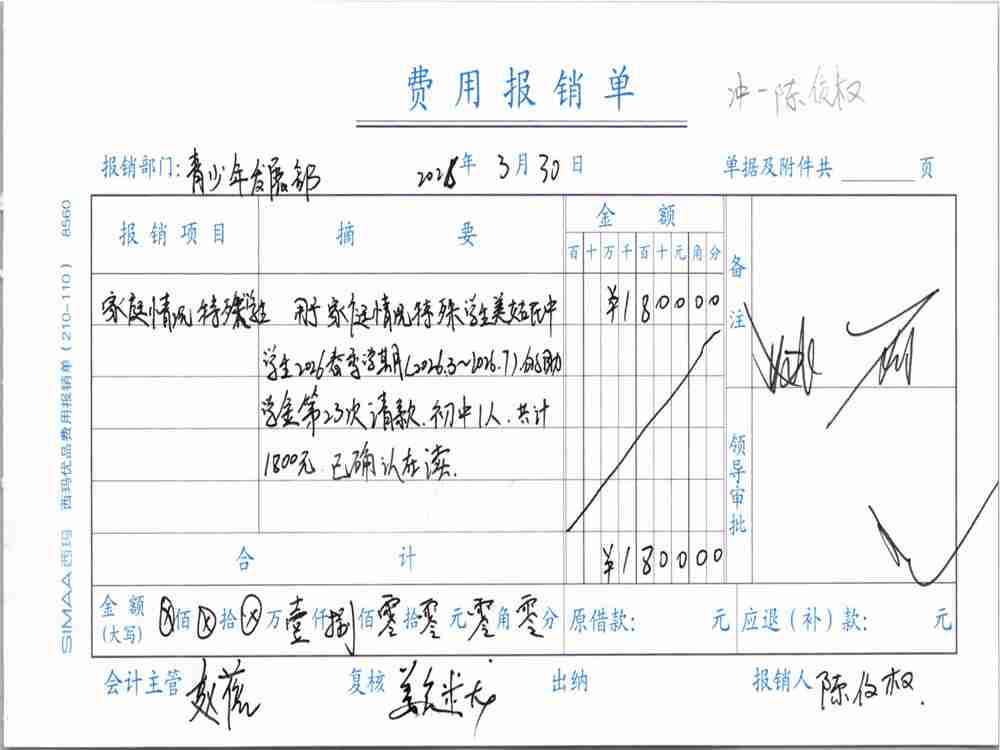 费用报销单
冲-陈俊权
报销部门：青少年发展部 2026年3月30日 单据及附件共 页
报销项目 摘要 金额 备注
百十万千百十元角分
家庭情况特殊学生 用于家庭情况特殊学生美姑民中 ¥180000
学生2026春季学期(2026.3~2026.7)的助
学金第23次请款.初中1人.共计
1800元.已确认在读.
领导审批
合计 ¥180000
金额(大写) ⊗佰⊗拾⊗万壹仟捌佰零拾零元零角零分 原借款: 元 应退（补）款: 元
会计主管 复核 出纳 报销人 陈俊权.
SIMAA西玛 西玛优品费用报销单（210-110） 8560